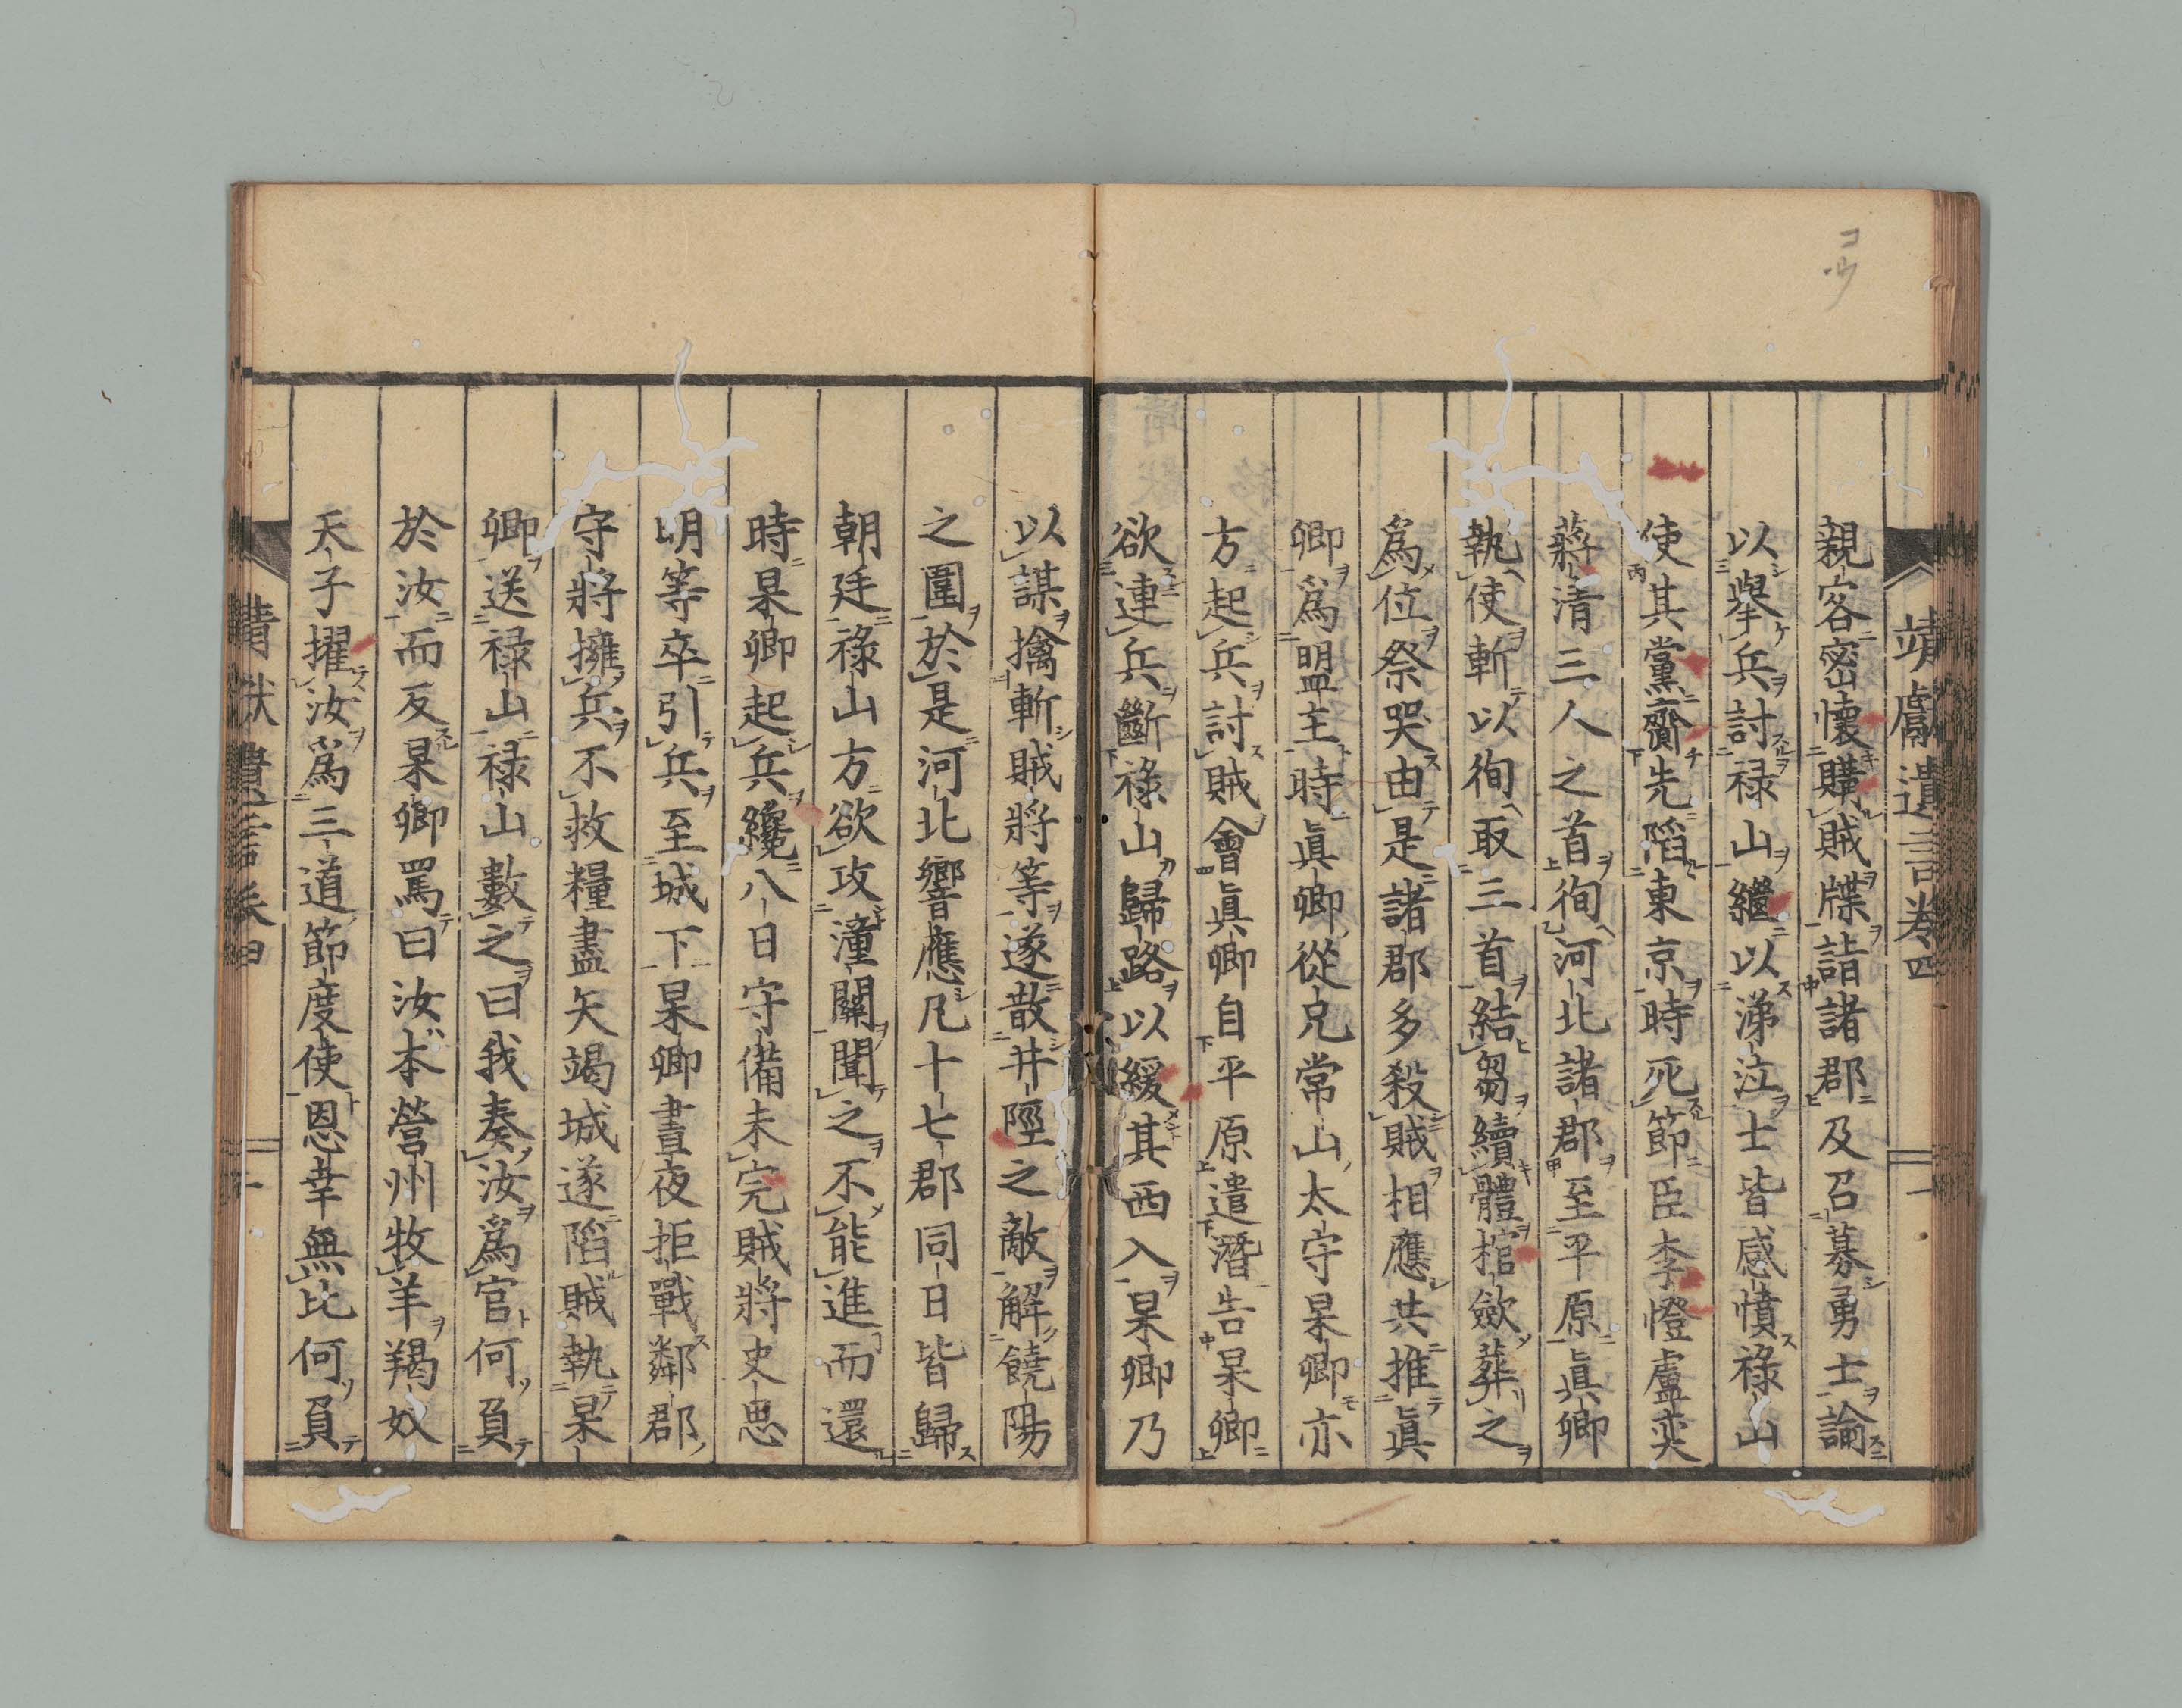 靖獻遺言卷四
一
親客密懷購賊牒詣諸郡及召募勇士諭
以擧兵討祿山繼以涕泣士皆感憤祿山
使其黨齎先陷東京時死節臣李憕盧奕
蔣清三人之首徇河北諸郡至平原眞卿
執使斬以徇取三首結芻續體棺斂葬之
爲位祭哭由是諸郡多殺賊相應共推眞
卿爲盟主時眞卿從兄常山太守杲卿亦
方起兵討賊會眞卿自平原遣潛告杲卿
欲連兵斷祿山歸路以緩其西入杲卿乃
以謀擒斬賊將等遂散井陘之敵解饒陽
之圍於是河北響應凡十七郡同日皆歸
朝廷祿山方欲攻潼關聞之不能進而還
時杲卿起兵纔八日守備未完賊將史思
明等卒引兵至城下杲卿晝夜拒戰鄰郡
守將擁兵不救糧盡矢竭城遂陷賊執杲
卿送祿山祿山數之曰我奏汝爲官何負
於汝而反杲卿罵曰汝本營州牧羊羯奴
天子擢汝爲三道節度使恩幸無比何負